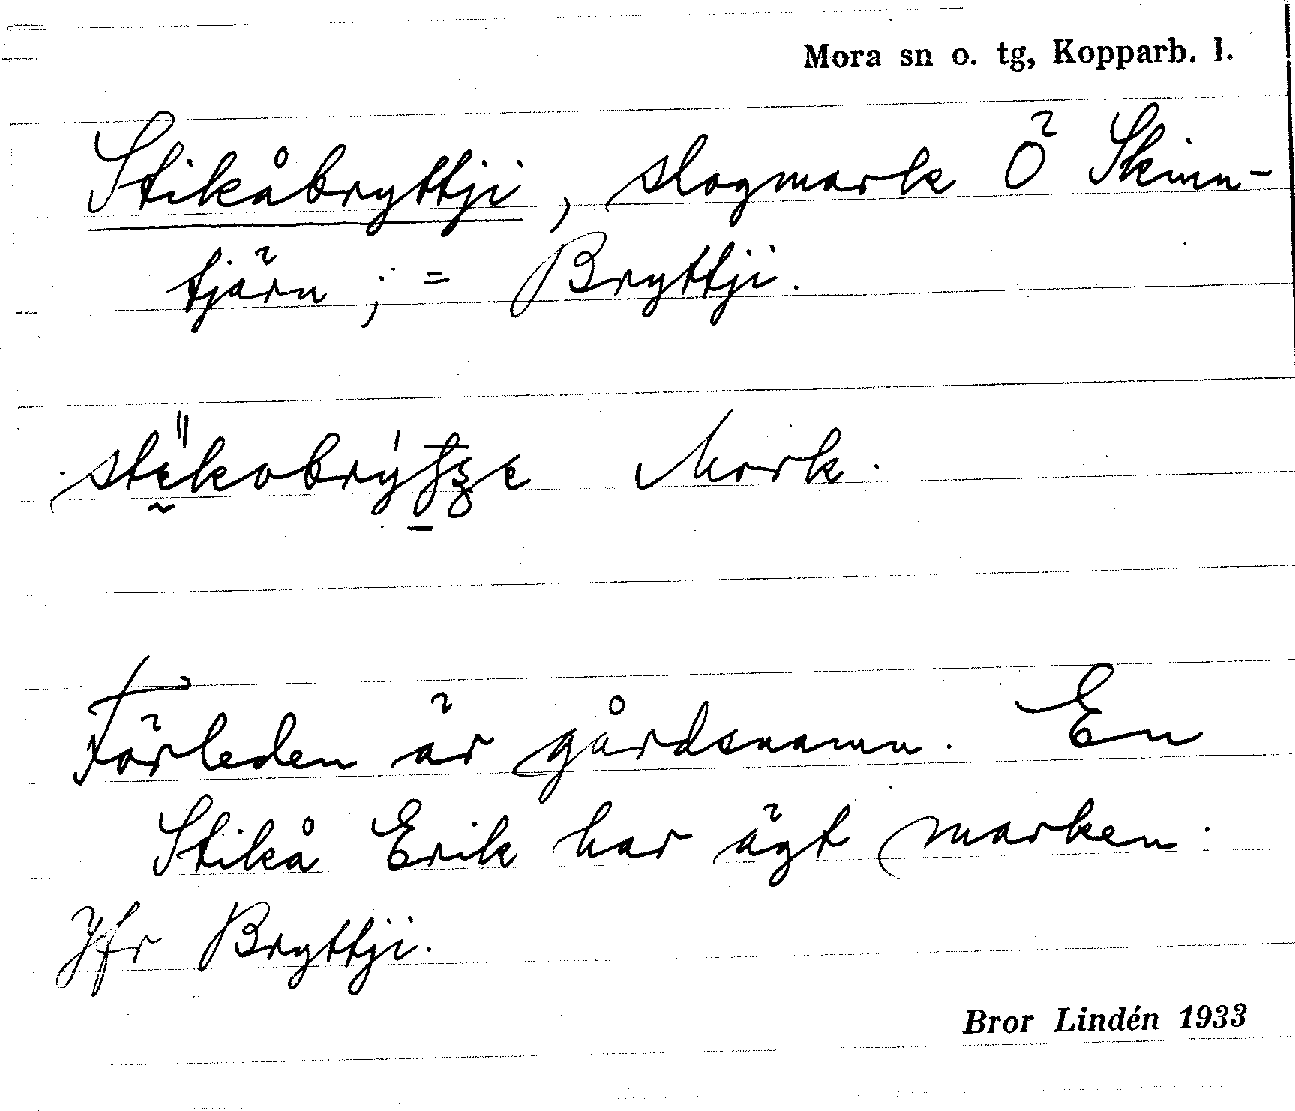 Mora sn o. tg, Kopparb. l.
Stikåbryttji, slogmark Ö Skinn-
tjärn ; = Bryttji.
Mork.
Förleden är gårdsnamn. En
Stikå Erik har ägt marken.
Jfr Bryttji.
Bror Lindén 1933